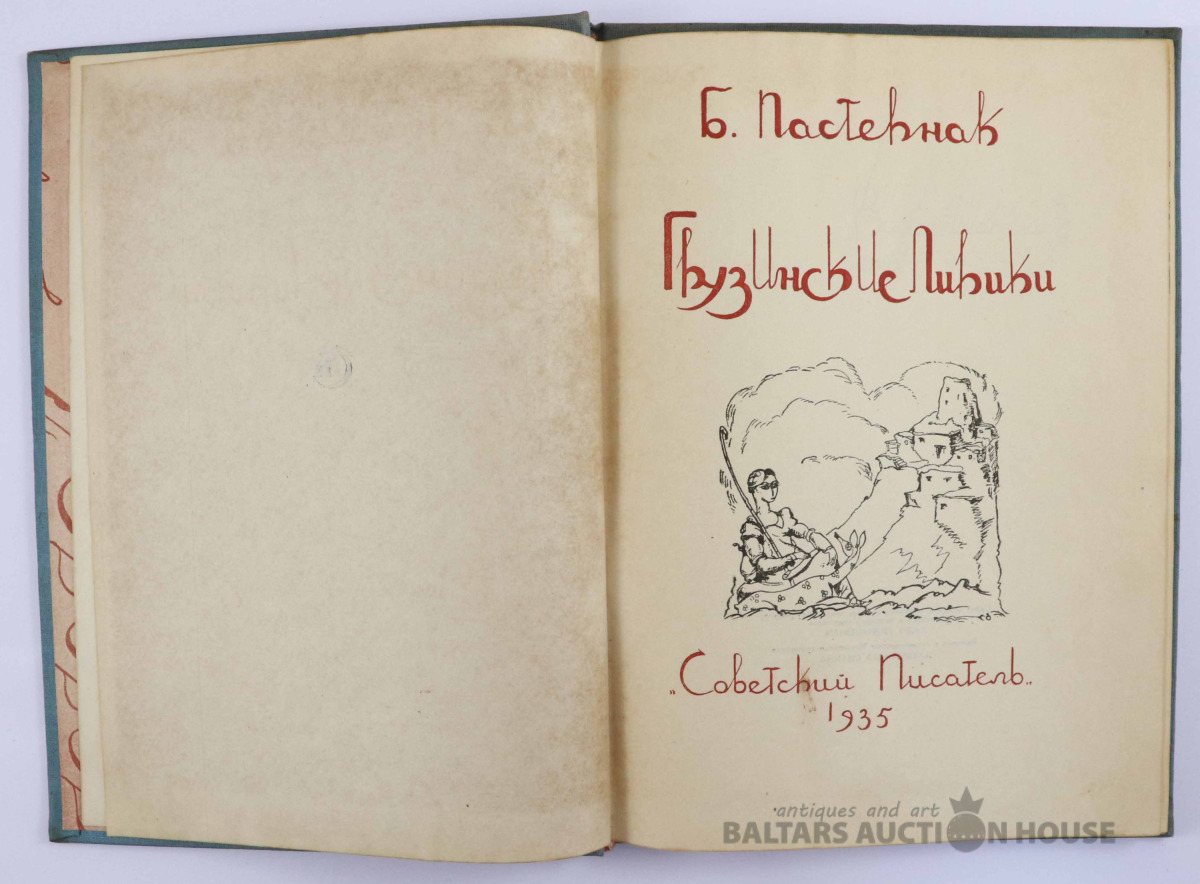 Б. Пастернак
Грузинские Лирики
„Советский Писатель„
1935
antiques and art
BALTARS AUCTION HOUSE